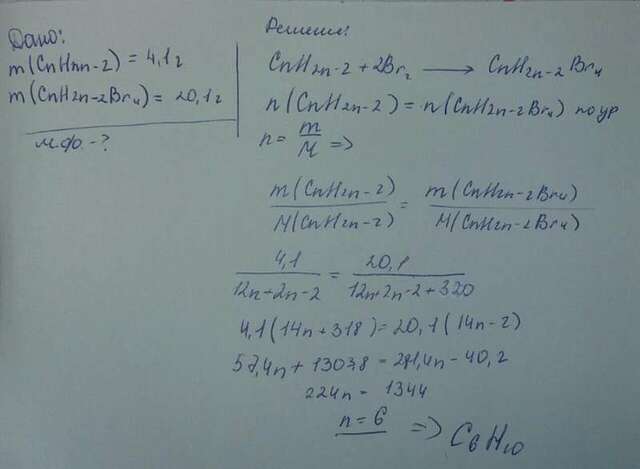 Дано:
m(CnH2n-2) = 4,1г
m(CnH2n-2Br4) = 20,1г
м.ф. - ?
Решение:
CnH2n-2 + 2Br2 ⟶ CnH2n-2Br4
n(CnH2n-2) = n(CnH2n-2Br4) по ур
n = m/M =>
m(CnH2n-2)/M(CnH2n-2) = m(CnH2n-2Br4)/M(CnH2n-2Br4)
4,1/12n+2n-2 = 20,1/12n+2n-2+320
4,1(14n+318) = 20,1(14n-2)
57,4n + 1303,8 = 281,4n - 40,2
224n = 1344
n = 6 => C6H10